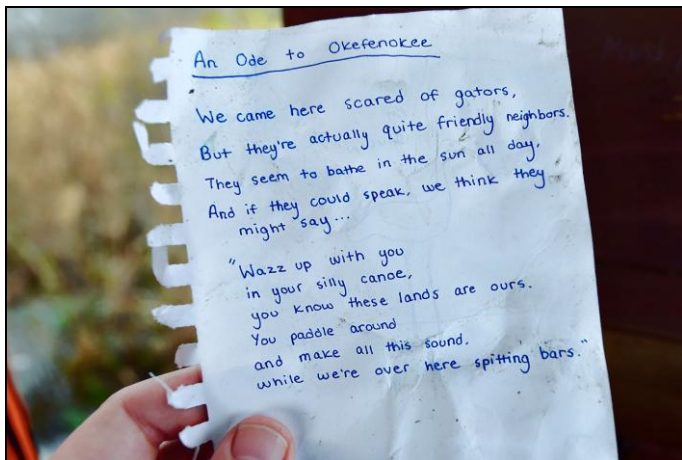 An Ode to Okefenokee
We came here scared of gators,
But they're actually quite friendly neighbors.
They seem to bathe in the sun all day,
And if they could speak, we think they
might say...
"Wazz up with you
in your silly canoe,
you know these lands are ours.
You paddle around
and make all this sound.
while we're over here spitting bars."